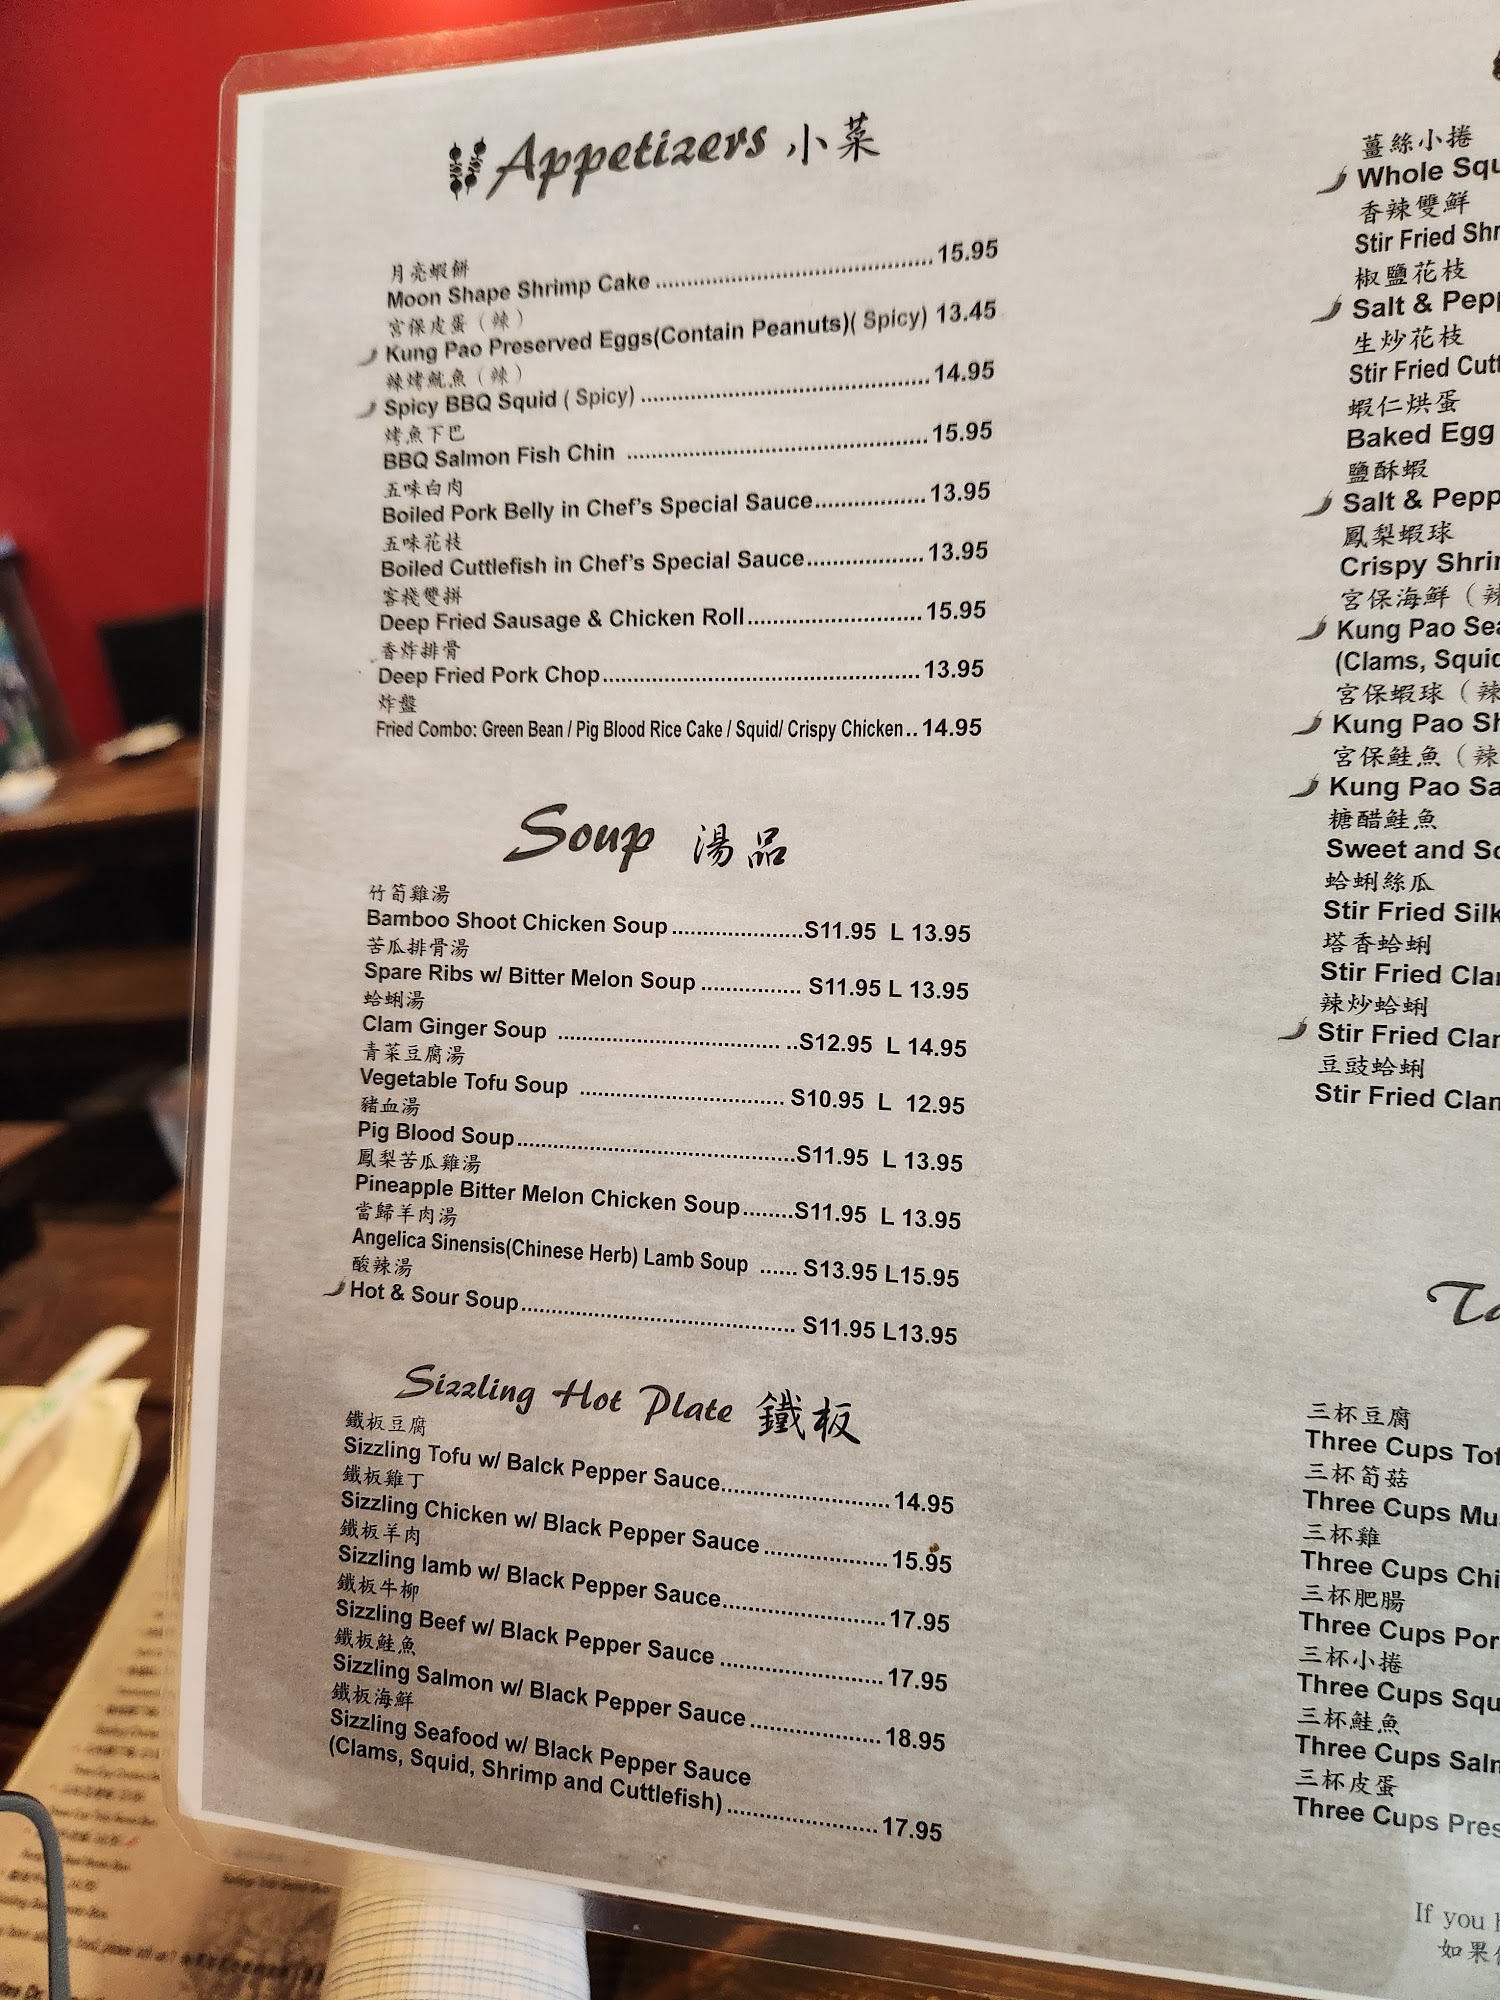 Appetizers 小菜
月亮蝦餅
Moon Shape Shrimp Cake ........................................ 15.95
宮保皮蛋（辣）
Kung Pao Preserved Eggs(Contain Peanuts)( Spicy) 13.45
辣烤魷魚（辣）
Spicy BBQ Squid ( Spicy) ........................................ 14.95
烤魚下巴
BBQ Salmon Fish Chin ........................................ 15.95
五味白肉
Boiled Pork Belly in Chef's Special Sauce................. 13.95
五味花枝
Boiled Cuttlefish in Chef's Special Sauce.................. 13.95
客棧雙拼
Deep Fried Sausage & Chicken Roll........................... 15.95
香炸排骨
Deep Fried Pork Chop................................................ 13.95
炸盤
Fried Combo: Green Bean / Pig Blood Rice Cake / Squid/ Crispy Chicken.. 14.95
Soup 湯品
竹筍雞湯
Bamboo Shoot Chicken Soup .....................S11.95 L 13.95
苦瓜排骨湯
Spare Ribs w/ Bitter Melon Soup ................ S11.95 L 13.95
蛤蜊湯
Clam Ginger Soup .................................... ..S12.95 L 14.95
青菜豆腐湯
Vegetable Tofu Soup ................................. S10.95 L 12.95
豬血湯
Pig Blood Soup.............................................S11.95 L 13.95
鳳梨苦瓜雞湯
Pineapple Bitter Melon Chicken Soup........S11.95 L 13.95
當歸羊肉湯
Angelica Sinensis(Chinese Herb) Lamb Soup ...... S13.95 L15.95
酸辣湯
Hot & Sour Soup............................................ S11.95 L13.95
Sizzling Hot Plate 鐵板
鐵板豆腐
Sizzling Tofu w/ Balck Pepper Sauce........................... 14.95
鐵板雞丁
Sizzling Chicken w/ Black Pepper Sauce.................... 15.95
鐵板羊肉
Sizzling lamb w/ Black Pepper Sauce.......................... 17.95
鐵板牛柳
Sizzling Beef w/ Black Pepper Sauce .......................... 17.95
鐵板鮭魚
Sizzling Salmon w/ Black Pepper Sauce ..................... 18.95
鐵板海鮮
Sizzling Seafood w/ Black Pepper Sauce
(Clams, Squid, Shrimp and Cuttlefish)........................ 17.95
薑絲小捲
Whole Squ
香辣雙鮮
Stir Fried Shr
椒鹽花枝
Salt & Pepp
生炒花枝
Stir Fried Cutt
蝦仁烘蛋
Baked Egg
鹽酥蝦
Salt & Pepp
鳳梨蝦球
Crispy Shrim
宮保海鮮（辣
Kung Pao Sea
(Clams, Squid
宮保蝦球（辣
Kung Pao Sh
宮保鮭魚（辣
Kung Pao Sa
糖醋鮭魚
Sweet and So
蛤蜊絲瓜
Stir Fried Silk
塔香蛤蜊
Stir Fried Clam
辣炒蛤蜊
Stir Fried Clam
豆豉蛤蜊
Stir Fried Clam
Ta
三杯豆腐
Three Cups Tof
三杯筍菇
Three Cups Mus
三杯雞
Three Cups Chi
三杯肥腸
Three Cups Por
三杯小捲
Three Cups Squ
三杯鮭魚
Three Cups Salm
三杯皮蛋
Three Cups Pres
If you h
如果